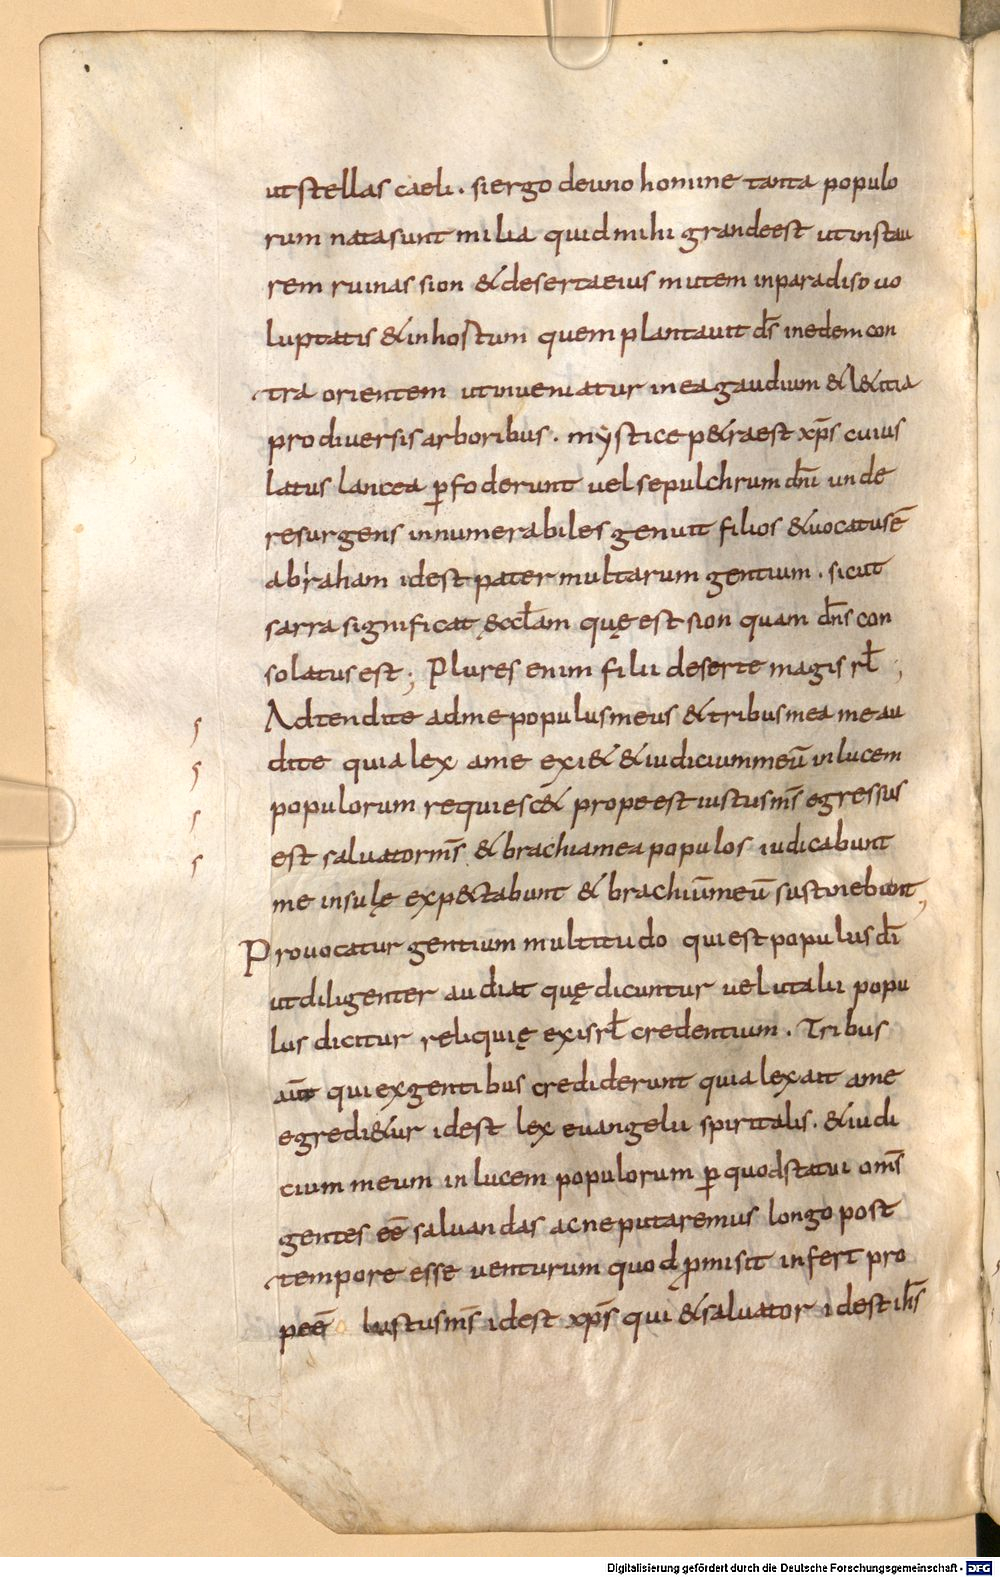 ut stellas caeli. si ergo de uno homine tanta populo
rum nata sunt milia quid mihi grande est ut instau
rem ruinas sion & deserta eius mutem in paradiso uo
luptatis & in hostum quem plantauit ds̄ in edem con
tra orientem ut inueniatur in ea gaudium & l&itia
pro diuersis arboribus. mystice p&ra est xp̄s cuius
latus lancea ꝑfoderunt uel sepulchrum dn̄i unde
resurgens innumerabiles genuit filios & uocatus ē
abraham id est pater multarum gentium. sicut
sarra significat ęccl̄am quę est sion quam dn̄s con
solatus est; Plures enim filii deserte magis rl̄;
Adtendite ad me populus meus & tribus mea me au
dite quia lex a me exi& & iudicium meū in lucem
populorum requiesc& prope est iustus ms̄ egressus
est saluator ms̄ & brachia mea populos iudicabunt
me insulę exp&tabunt & brachiū meū sustinebunt;
Prouocatur gentium multitudo qui est populus dī
ut diligenter audiat quę dicuntur uel ut alii popu
lus dicitur reliquię ex isrl̄ credentium. Tribus
aūt qui ex gentibus crediderunt quia lex ait a me
egredi&ur id est lex euangelii spiritalis. & iudi
cium meum in lucem populorum ꝑ quod statui om̄s
gentes eē saluandas ac ne putaremus longo post
tempore esse uenturum quod ꝓmisit infert pro
pe eē Iustus ms̄ id est xp̄s qui & saluator id est ih̄s
Digitalisierung gefördert durch die Deutsche Forschungsgemeinschaft - DFG